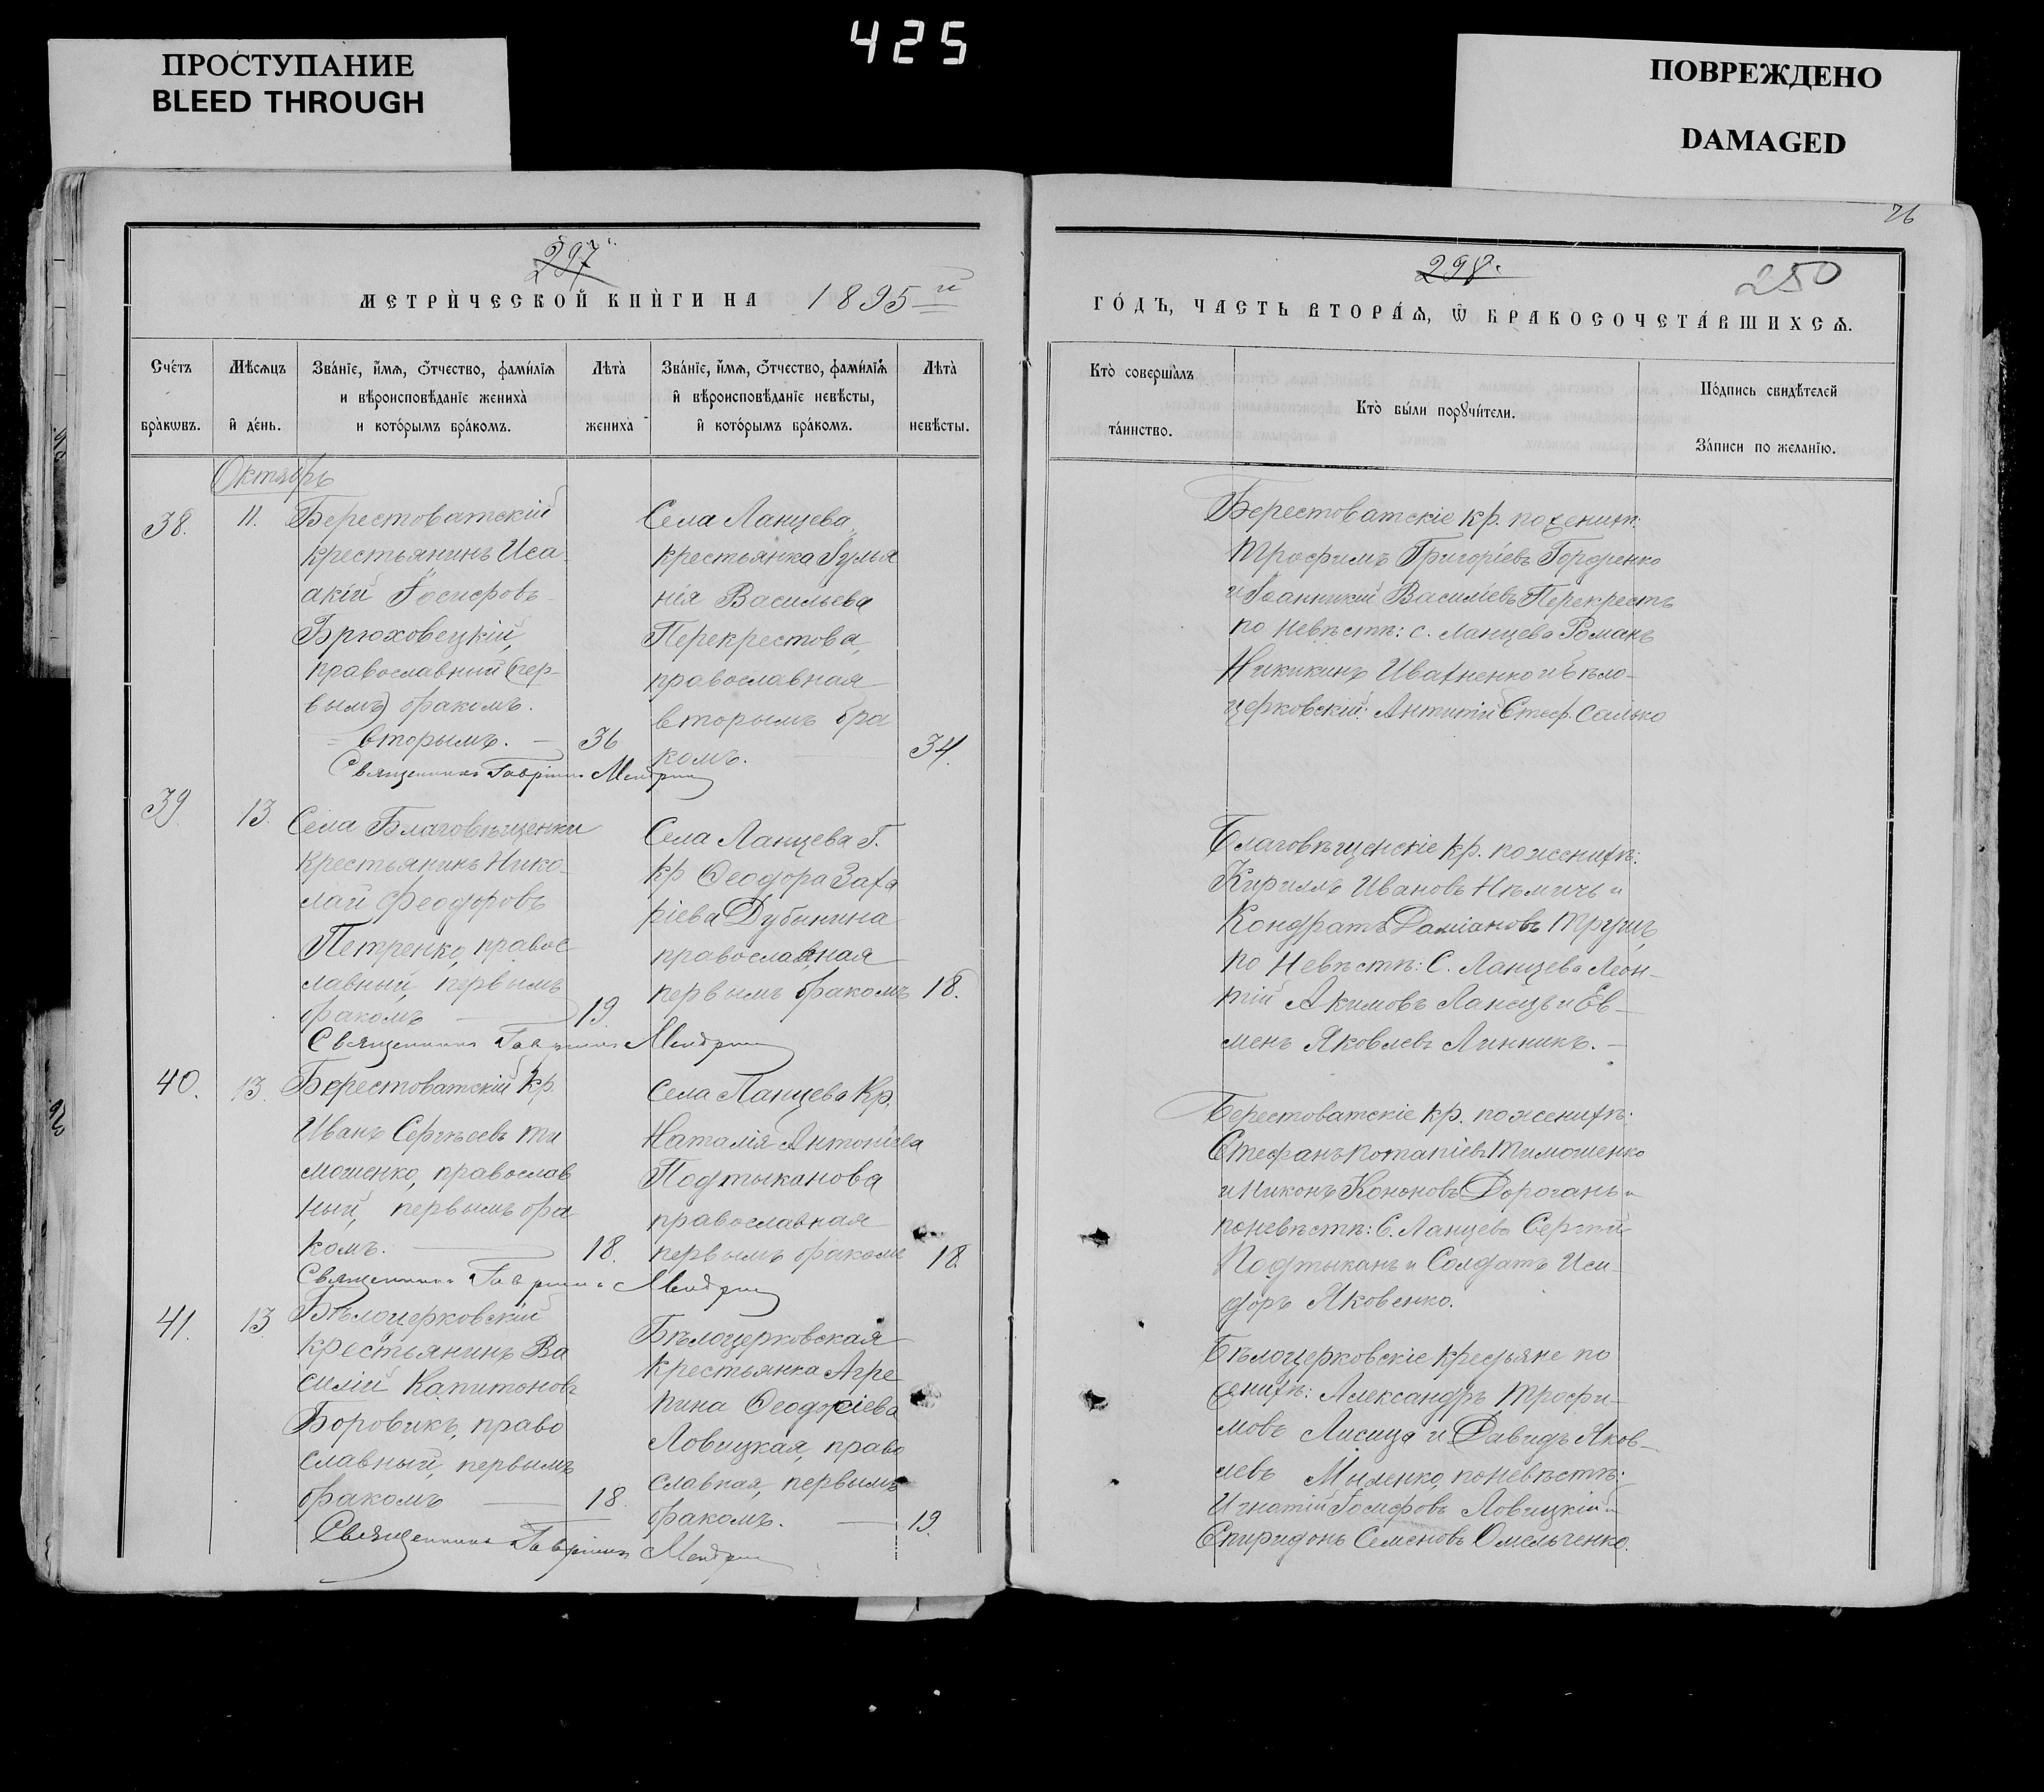 425
ПРОСТУПАНИЕ
BLEED THROUGH
ПОВРЕЖДЕНО
DAMAGED
76
297
МЕТРИ́ЧЕСКОЙ КНИ́ГИ НА 1895й
298.
250
ГО́ДЪ, ЧАСТЬ ВТОРА́Ѧ, Ѿ БРАКОСОЧЕТА́ВШИХСѦ.
Сче́тъ бра́кѡвъ.
Мѣсѧцъ и҆ де́нь.
Зва́нїе, и҆́мѧ, ѻ҆́тчество, фами́лїѧ
и вѣроисповѣ́данїе жениха̀
и кото́рымъ бра́комъ.
Лѣта̀ жениха̀
Зва́нїе, и҆́мѧ, ѻ҆́тчество, фами́лїѧ
и҆ вѣроисповѣ́данїе невѣ́сты,
и҆ кото́рымъ бра́комъ.
Лѣта̀ невѣ́сты.
Кто̀ соверша́лъ та́инство.
Кто̀ бы́ли порꙋчи́тели.
По́дпись свидѣ́телей
За́писи по жела́нїю.
Октябрь
38.
11.
Берестоватскій
крестьянинъ Иса
акій Іосифовъ
Брюховецкій,
православный (пер-
вымъ) бракомъ.
= вторымъ. —
36
Села Ланцева,
крестьянка Іулiа
нія Васильева
Перекрестова,
православная
вторымъ бра
комъ.
34.
Священникъ Гавріилъ
Берестоватскіе кр. по жених:
Трофимъ Григоріевъ Гордіенко
и Іоанникій Василіевъ Перекрестъ
по невѣстѣ: с. Ланцева Романъ
Ивахненко и Бѣло-
церковскій: Антипій Стеф. Салько
39.
13.
Села Благовѣщенки
крестьянинъ Нико-
лай Феодоровъ
Петренко, правос
лавный, первымъ
бракомъ —
19.
Села Ланцева
кр Ѳеодора Заха
ріева Дубинина
православная
первымъ бракомъ
18.
Священникъ Гавріилъ
Благовѣщенскіе кр. по женихѣ:
Кириллъ Ивановъ Нѣмичъ и
Кондратъ Даміановъ
по невѣстѣ: С. Ланцева Леон-
тій Акимовъ Ланецъ и Ев-
менъ Яковлевъ Линникъ. —
40.
13.
Берестоватскій кр.
Иванъ Сергѣевъ Ти
мошенко, православ
ный, первымъ бра
комъ. —
18.
Села Ланцева Кр.
Наталія Антоніева
Подтыканова
православная
первымъ бракомъ
18.
Священникъ Гавріилъ
Берестоватскіе кр. по женихѣ:
Стефанъ Потапіевъ Тимошенко
и Никонъ Кононовъ Дорогань и
по невѣстѣ: С. Ланцева Сергій
Подтыканъ и Солдатъ Иси-
доръ Яковенко.
41.
13
Бѣлоцерковскій
крестьянинъ Ва
силій Капитоновъ
Боровикъ, право
славный, первымъ
бракомъ —
18.
Бѣлоцерковская
крестьянка Агре
пина Ѳеодосіева
Ловицкая, право
славная, первымъ
бракомъ. —
19.
Священникъ Гавріилъ
Бѣлоцерковскіе по
женихѣ: Александръ Трофи-
мовъ Лисица и Давидъ Яков-
левъ по невѣстѣ:
Игнатій Іосифовъ Ловицкій и
Спиридонъ Семеновъ Омельченко.